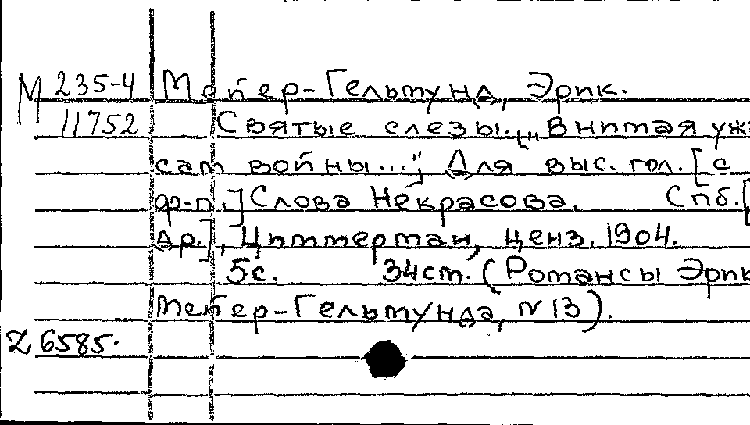 М 235-4 Мейер-Гельмунд, Эрик.
11752 Святые слезы. „Внимая уж
сам войны..." Для выс. гол. [с
ф-п.] Слова Некрасова. Спб. [
др.], Циммерман, ценз. 1904.
5с. 34см. (Романсы Эрик
Мейер-Гельмунда, N 13).
Z 6585.